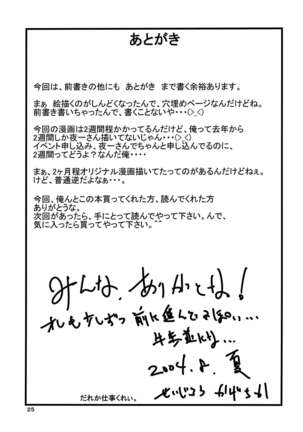 あとがき
今回は、前書きの他にも あとがき まで書く余裕あります。
まぁ 絵描くのがしんどくなったんで、穴埋めページなんだけどね。
前書き書いちゃったんで、書くことないや・・・(>_<)
今回の漫画は2週間程かかってるんだけど、俺って去年から
2週間しか夜一さん描いてないじゃん・・・(>_<)
イベント申し込み、夜一さんでちゃんと申し込んでるのに、
2週間ってどうよ?なんだ俺・・・・
まぁ、2ヶ月程オリジナル漫画描いてたってのがあるんだけどねぇ。
けど、普通逆だよなぁ・・・。
今回、俺んとこの本買ってくれた方、読んでくれた方
ありがとうな。
次回があったら、手にとって読んでやって下さい。んで、
気に入ったら買ってやって下さい。^^
みんな、ありがとな!
オレも少しずつ 前に進んでるぽい...
牛歩並にな...
2004.8.夏
だれか仕事くれい。
25